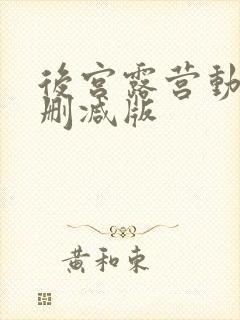 後宫露营動
删减版
黄和東